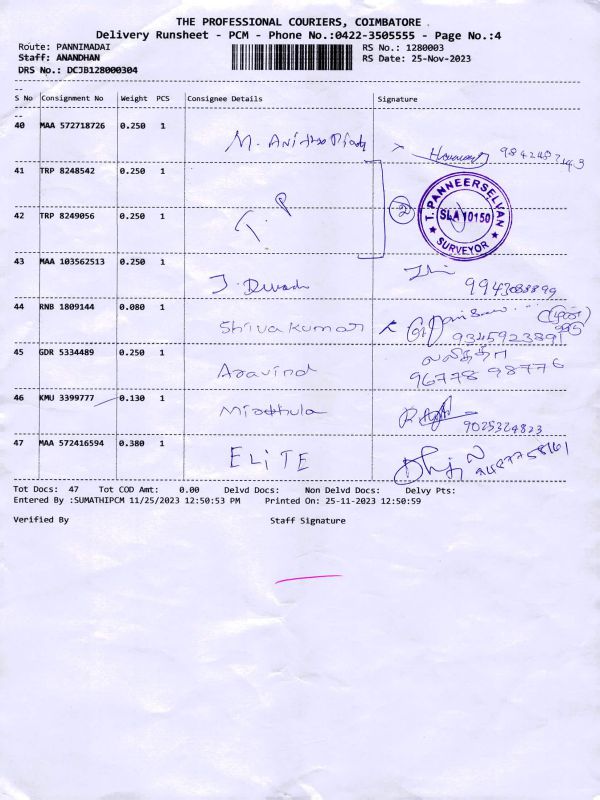 THE PROFESSIONAL COURIERS, COIMBATORE
Delivery Runsheet - PCM - Phone No.:0422-3505555 - Page No.:4
Route: PANNIMADAI RS No.: 1280003
Staff: ANANDHAN RS Date: 25-Nov-2023
DRS No.: DCJB128000304
S No Consignment No Weight PCS Consignee Details Signature
40 MAA 572718726 0.250 1 M. Anitha
41 TRP 8248542 0.250 1
T. PANNEERSELVAN
SLA 10150
SURVEYOR
42 TRP 8249056 0.250 1 T. P 2
43 MAA 103562513 0.250 1
9943088899
44 RNB 1809144 0.080 1 Shivakumar
9345923891
45 GDR 5334489 0.250 1 Aravind லலிதா
96778 98776
46 KMU 3399777 0.130 1 Mirdhula
9025324823
47 MAA 572416594 0.380 1 ELITE
Tot Docs: 47 Tot COD Amt: 0.00 Delvd Docs: Non Delvd Docs: Delvy Pts:
Entered By :SUMATHIPCM 11/25/2023 12:50:53 PM Printed On: 25-11-2023 12:50:59
Verified By Staff Signature